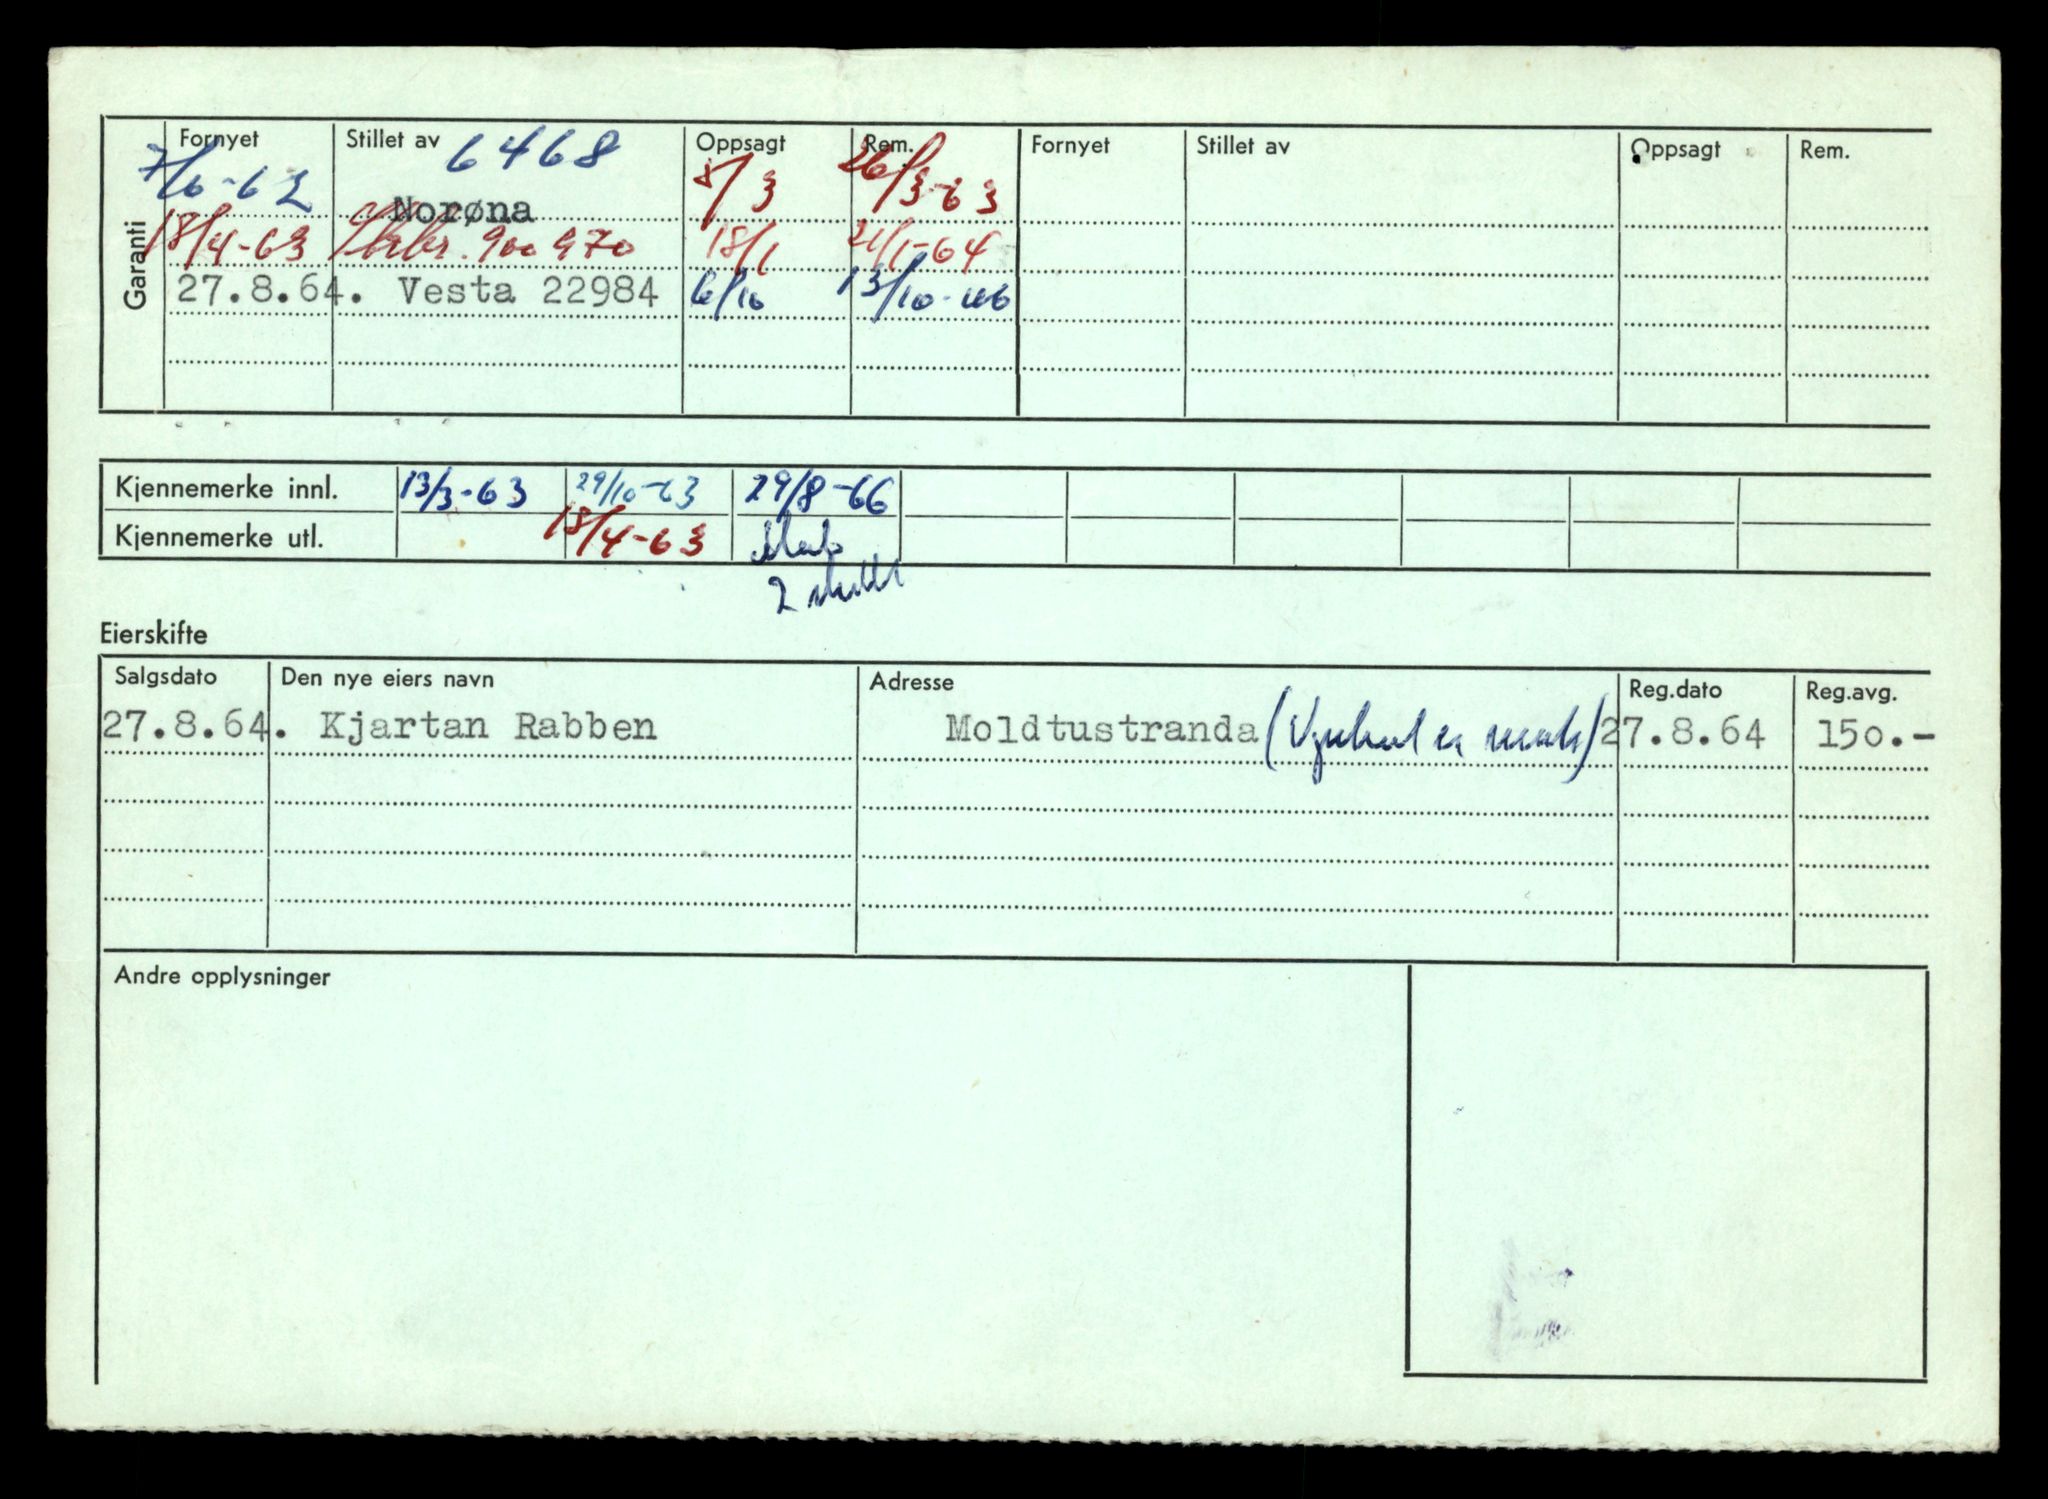 Garanti
Fornyet Stillet av Oppsagt Rem. Fornyet Stillet av Oppsagt Rem.
7/6-62 6468 Norøna 8/3 26/3-63
18/4-63 900970 18/1 21/1-64
27.8.64. Vesta 22984 6/10 13/10-66
Kjennemerke innl. 13/3-63 29/10-63 29/8-66
Kjennemerke utl. 18/4-63
2 skilt
Eierskifte
Salgsdato Den nye eiers navn Adresse Reg.dato Reg.avg.
27.8.64. Kjartan Rabben Moldtustranda 27.8.64 150.-
Andre opplysninger